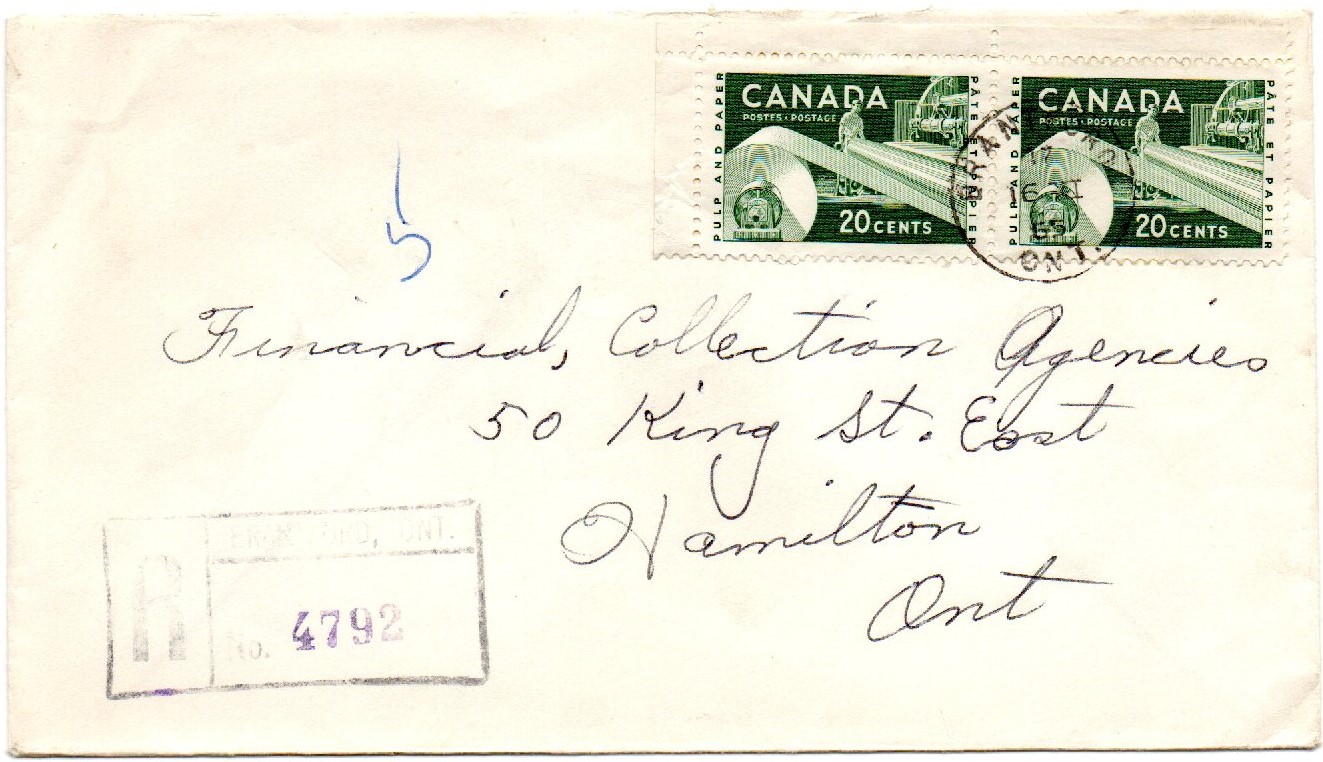 PULP AND PAPER
CANADA
POSTES • POSTAGE
20 CENTS
PÂTE ET PAPIER
PULP AND PAPER
CANADA
POSTES • POSTAGE
20 CENTS
PÂTE ET PAPIER
BRANTFORD
17
16
ONT.
5
Financial, Collection Agencies
50 King St. East
Hamilton
Ont
R
BRANTFORD, ONT.
No. 4792